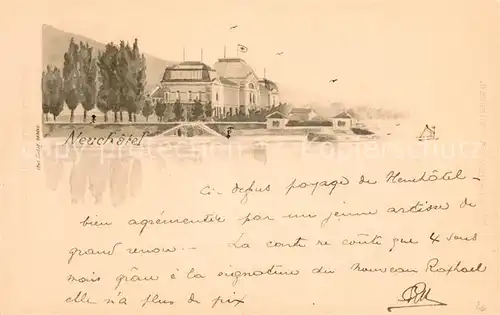 Neuchâtel
ci-dessus paysage de Neuchâtel -
bien agrémentée par un jeune artiste de
grand renom. - La carte ne coûte que 4 sous
mais grâce à la signature du nouveau Raphael
elle n'a plus de prix